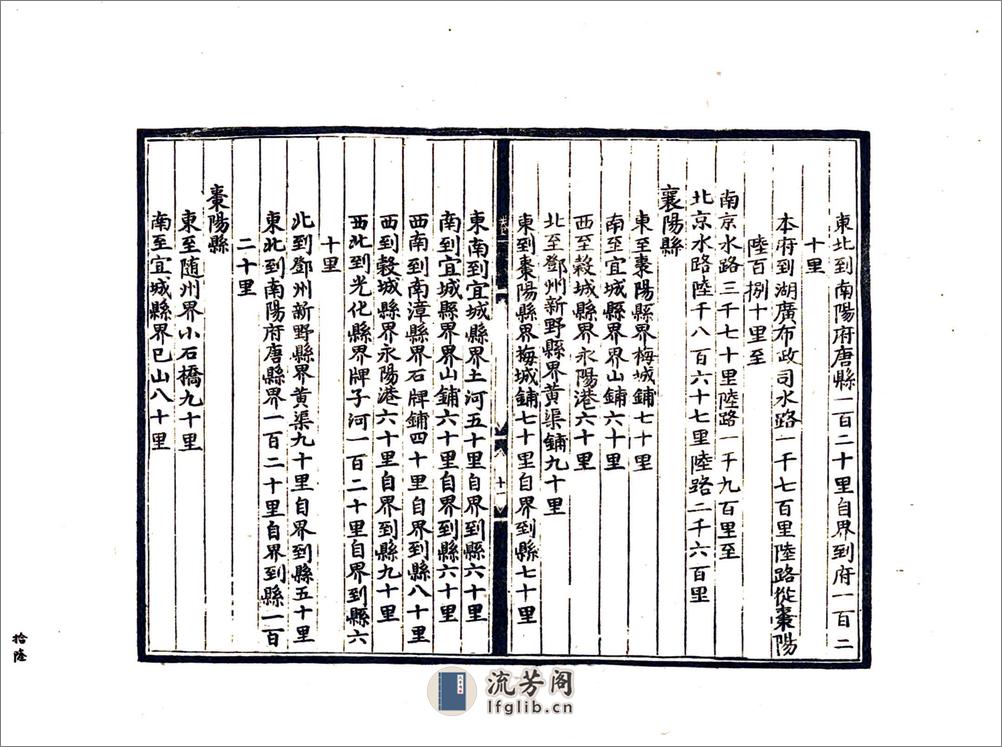 東北到南陽府唐縣一百二十里自界到府一百二
十里
本府到湖廣布政司水路一千七百里陸路從棗陽
陸百捌十里至
南京水路三千七十里陸路一千九百里至
北京水路陸千八百六十七里陸路二千六百里
襄陽縣
東至棗陽縣界梅城鋪七十里
南至宜城縣界界山鋪六十里
西至穀城縣界永陽港六十里
北至鄧州新野縣界黄渠鋪九十里
東到棗陽縣界梅城鋪七十里自界到縣七十里
十一
東南到宜城縣界土河五十里自界到縣六十里
南到宜城縣界界山鋪六十里自界到縣六十里
西南到南漳縣界石牌鋪四十里自界到縣八十里
西到穀城縣界永陽港六十里自界到縣九十里
西北到光化縣界牌子河一百二十里自界到縣六
十里
北到鄧州新野縣界黄渠九十里自界到縣五十里
東北到南陽府唐縣界一百二十里自界到縣一百
二十里
棗陽縣
東至随州界小石橋九十里
南至宜城縣界巳山八十里
拾陸
流芳阁
lfglib.cn